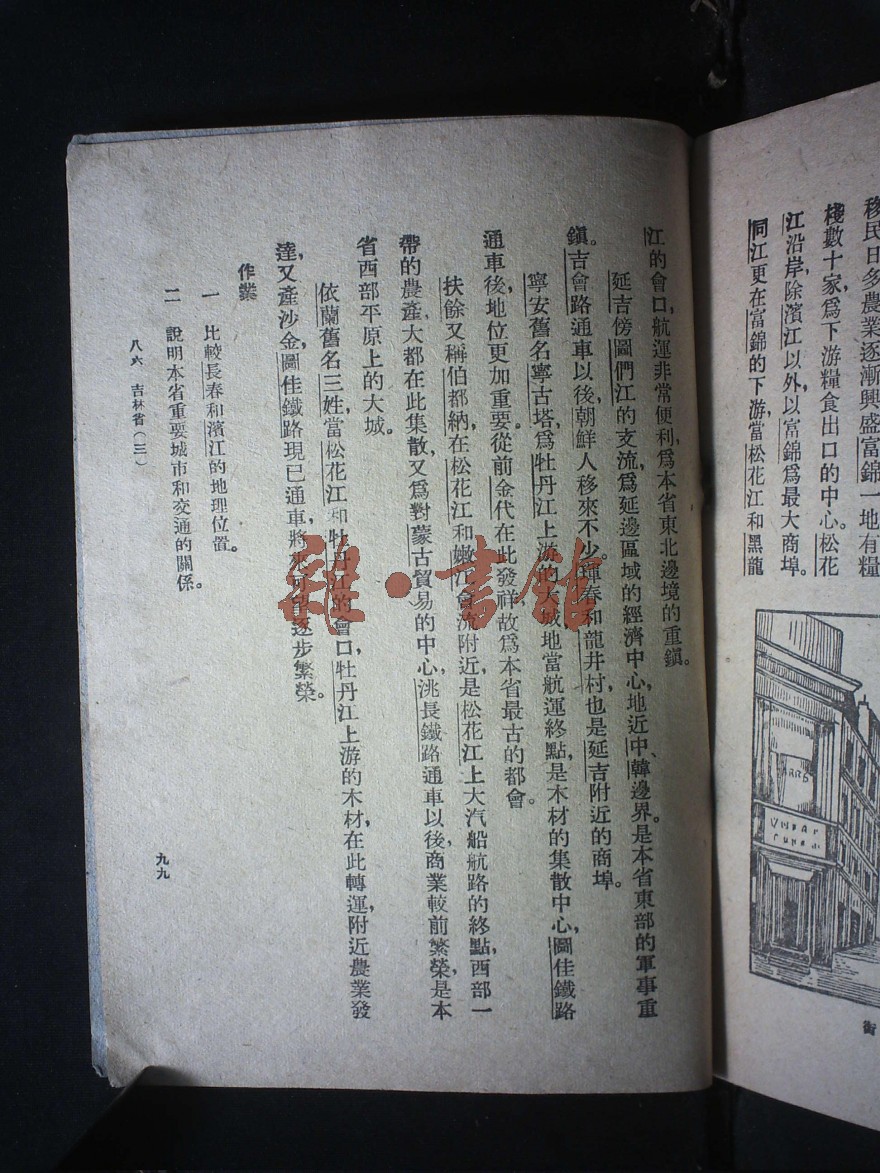 移民日多農業逐漸興盛富錦一地有糧
棧數十家爲下游糧食出口的中心松花
江沿岸除濱江以外以富錦爲最大商埠。
同江更在富錦的下游當松花江和黑龍
街
江的會口航運非常便利，爲本省東北邊境的重鎭。
延吉傍圖們江的支流，爲延邊區域的經濟中心，地近中、韓邊界。是本省東部的軍事重
鎭。吉會路通車以後，朝鮮人移來不少。琿春和龍井村也是延吉附近的商埠。
寧安舊名寧古塔，爲牡丹江上游的大城，地當航運終點，是木材的集散中心，圖佳鐵路
通車後，地位更加重要。從前金代在此發祥，故爲本省最古的都會。
扶餘又稱伯都納，在松花江和嫩江會流附近，是松花江上大汽船航路的終點，西部一
帶的農產，大都在此集散，又爲對蒙古貿易的中心，洮長鐵路通車以後，商業較前繁榮，是本
省西部平原上的大城。
依蘭舊名三姓，當松花江和牡丹江的會口，牡丹江上游的木材，在此轉運，附近農業發
達，又產沙金，圖佳鐵路現已通車，將來可望逐步繁榮。
作業
一 比較長春和濱江的地理位置。
二 說明本省重要城市和交通的關係。
八六 吉林省（三）
九九
雜·書館